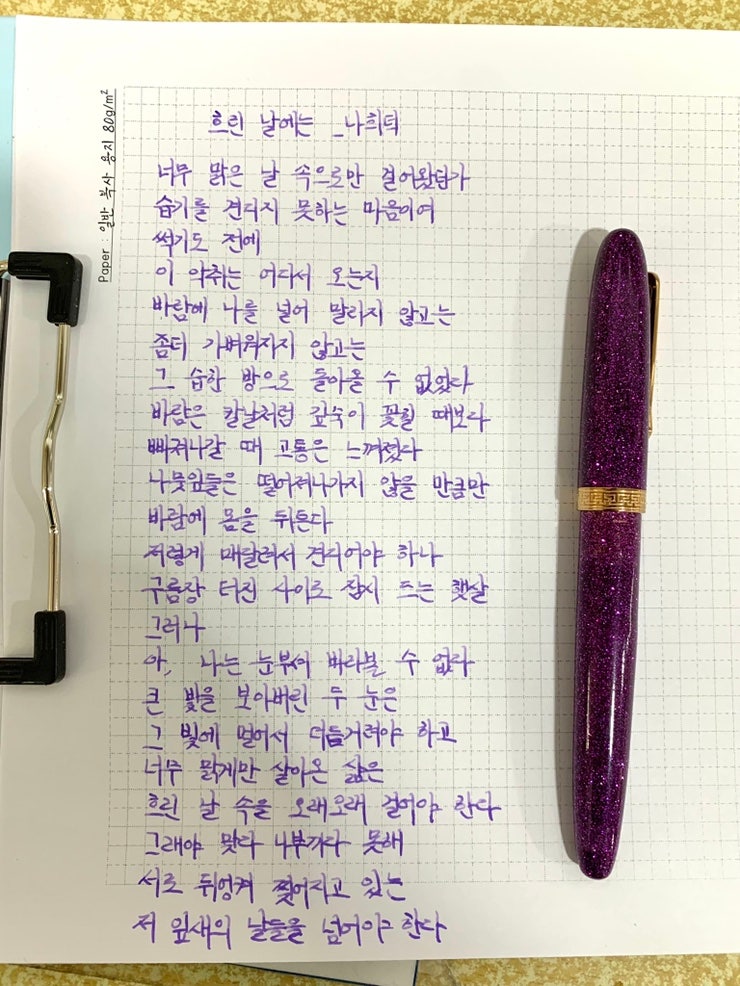 Paper : 일반 복사 용지 80g/m²
흐린 날에는 _나희덕
너무 맑은 날 속으로만 걸어왔던가
습기를 견디지 못하는 마음이여
썩기도 전에
이 악취는 어디서 오는지
바람에 나를 널어 말리지 않고는
좀더 가벼워지지 않고는
그 습한 방으로 돌아올 수 없었다
바람은 칼날처럼 깊숙이 꽂힐 때보다
빠져나갈 때 고통은 느껴졌다
나뭇잎들은 떨어져나가지 않을 만큼만
바람에 몸을 뒤튼다
저렇게 매달려서 견디어야 하나
구름장 터진 사이로 잠시 드는 햇살
그러나
아, 나는 눈부셔 바라볼 수 없다
큰 빛을 보아버린 두 눈은
그 빛에 멀어서 더듬거려야 하고
너무 맑게만 살아온 삶은
흐린 날 속을 오래오래 걸어야 한다
그래야 맞다 나부끼다 못해
서로 뒤엉켜 찢어지고 있는
저 잎새의 날들을 넘어야 한다